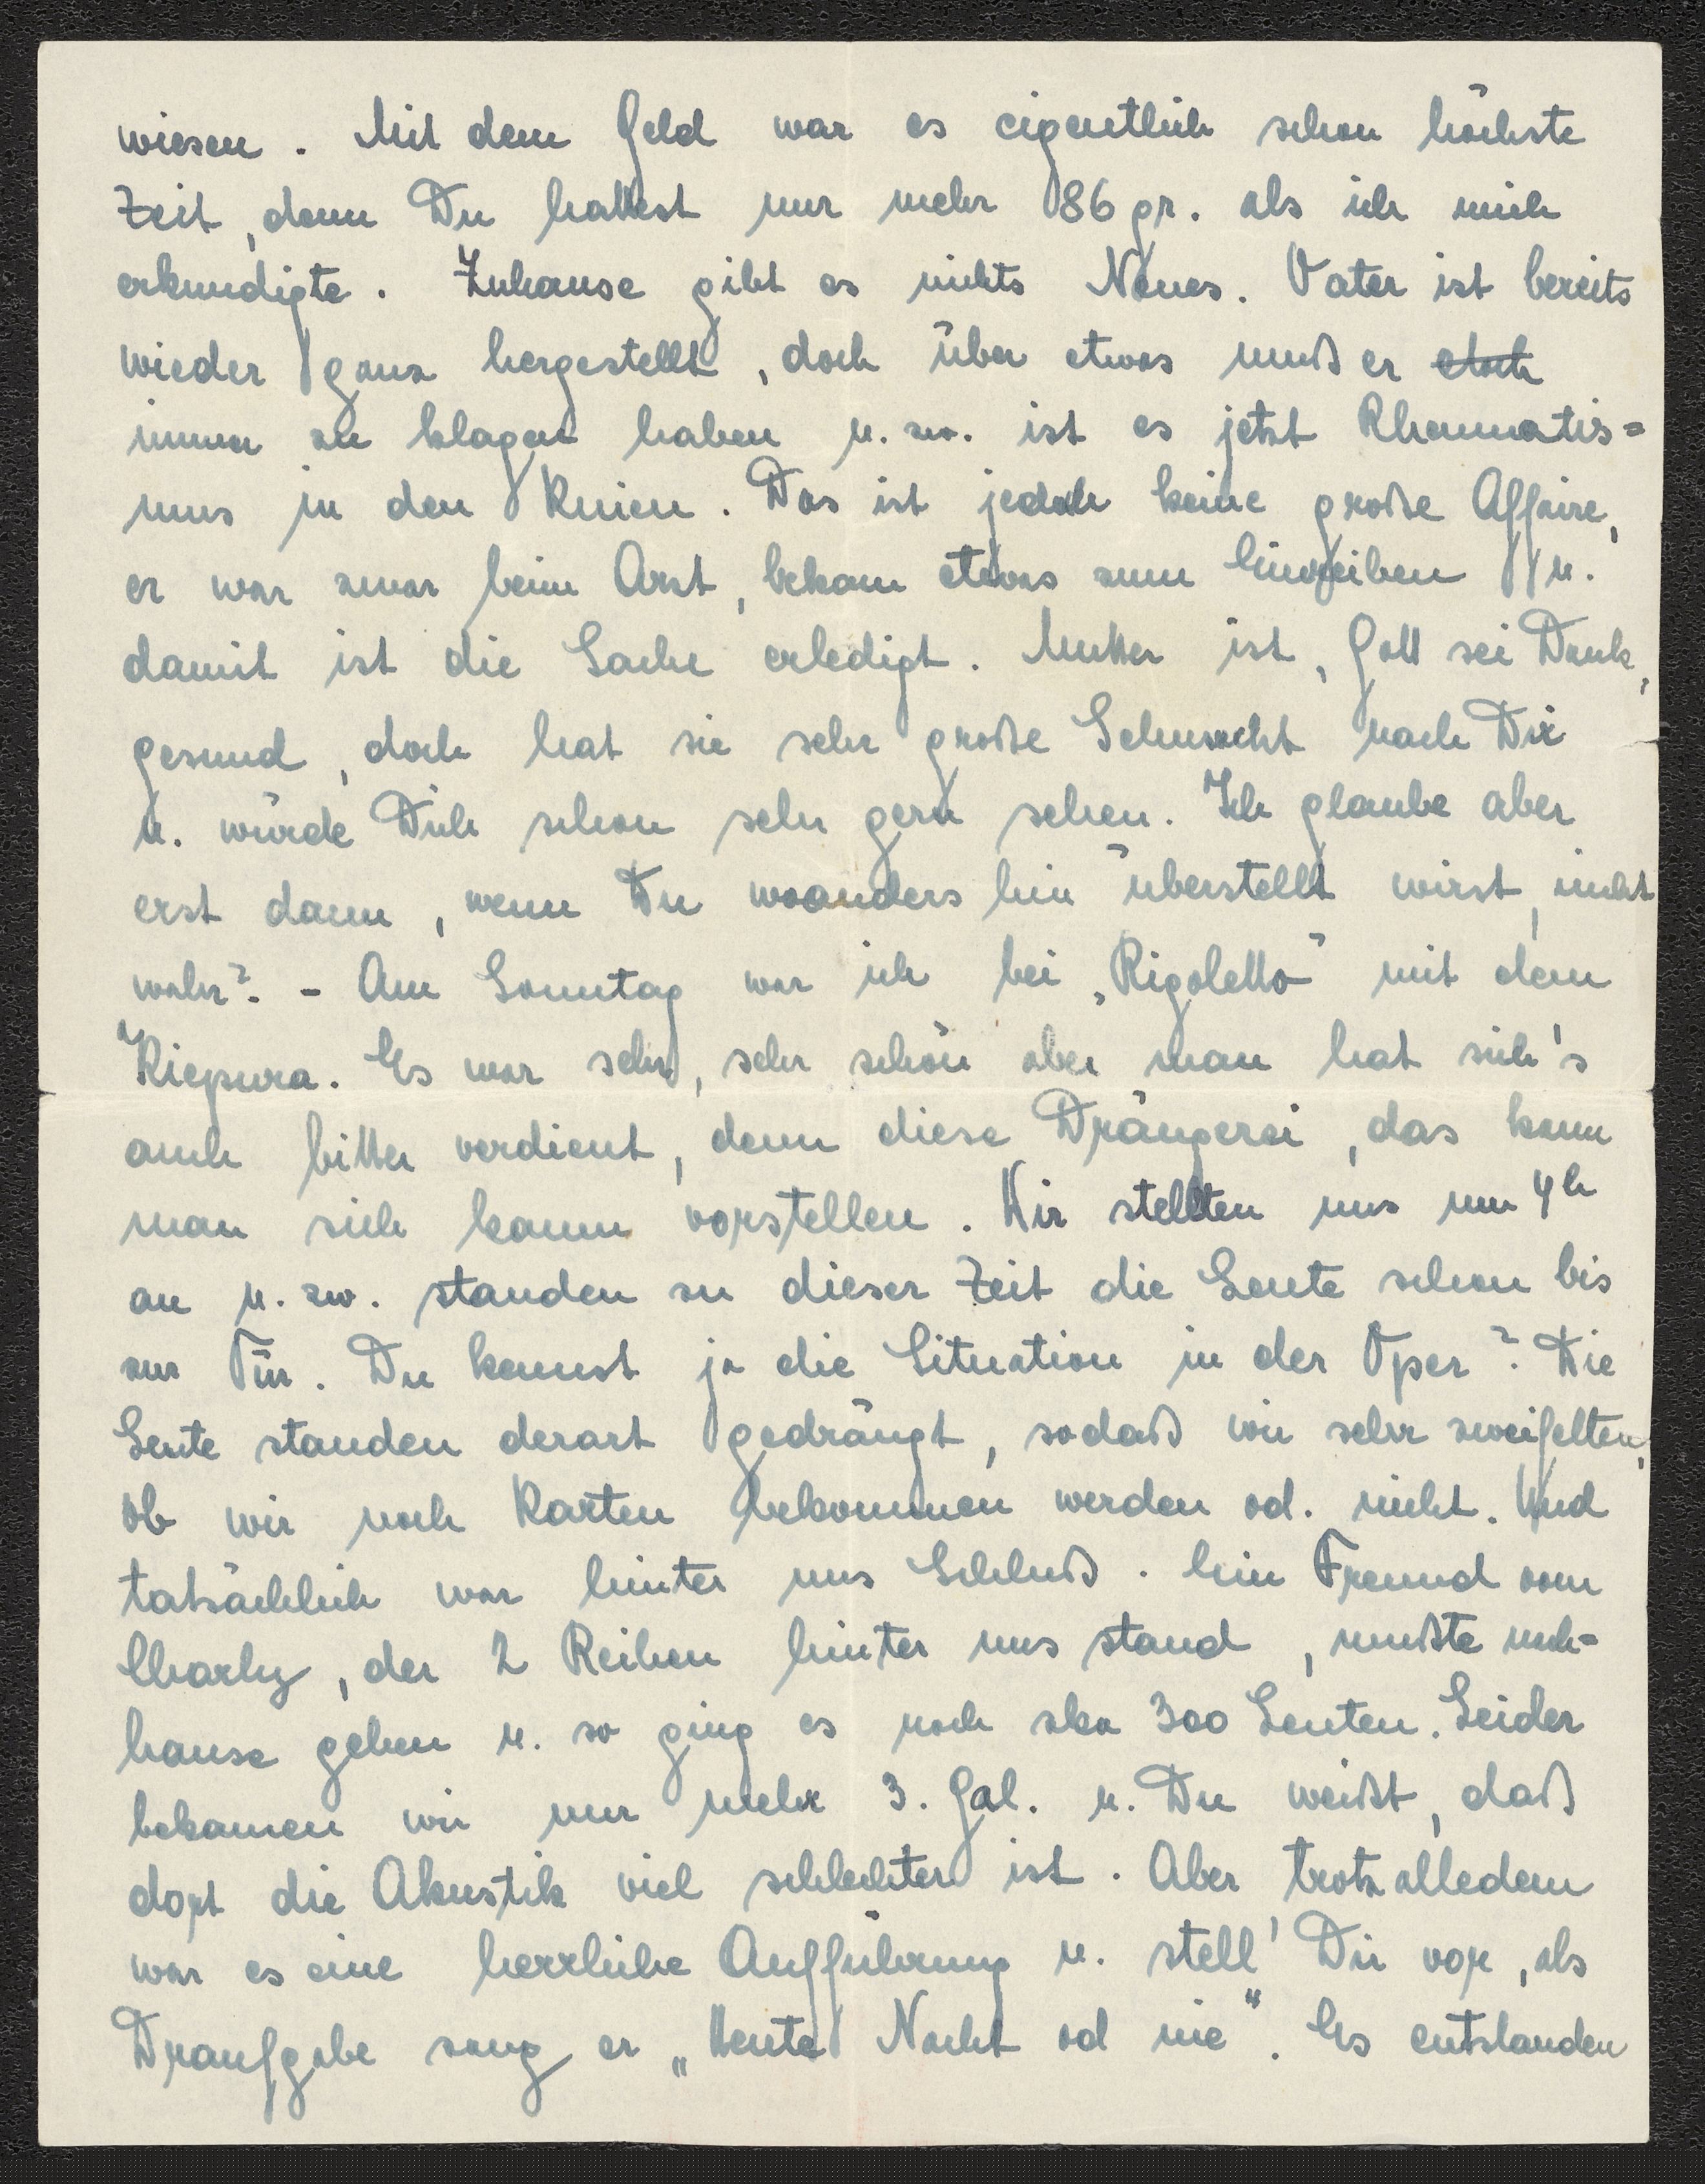 wiesen. Mit dem Geld war es eigentlich schon höchste
Zeit, denn Du hattest nur mehr 86 gr. als ich mich
erkundigte. Zuhause gibt es nichts Neues. Vater ist bereits
wieder ganz hergestellt, doch über etwas muß er doch
immer zu klagen haben u. zw. ist es jetzt Rheumatis=
mus in den Knien. Das ist jedoch keine große Affaire,
er war zwar beim Arzt, bekam etwas zum Einreiben u.
damit ist die Sache erledigt. Mutter ist, Gott sei Dank,
gesund, doch hat sie sehr große Sehnsucht nach Dir
u. würde Dich schon sehr gern sehen. Ich glaube aber
erst dann, wenn Du woanders hin überstellt wirst, nicht
wahr? - Am Sonntag war ich bei „Rigoletto" mit dem
Kiepura. Es war sehr, sehr schön aber man hat sich's
auch bitter verdient, denn diese Drängerei, das kann
man sich kaum vorstellen. Wir stellten uns um 4h
an u. zw. standen zu dieser Zeit die Leute schon bis
zur Tür. Du kennst ja die Situation in der Oper? Die
Leute standen derart gedrängt, sodaß wir sehr zweifelten,
ob wir noch Karten bekommen werden od. nicht. Und
tatsächlich war hinter uns Schluß. Ein Freund vom
Charly, der 2 Reihen hinter uns stand, mußte nach=
hause gehen u. so ging es noch zka 300 Leuten. Leider
bekamen wir nur mehr 3. Gal. u. Du weißt, daß
dort die Akustik viel schlechter ist. Aber trotz alledem
war es eine herrliche Aufführung u. stell' Dir vor, als
Draufgabe sang er „Heute Nacht od nie". Es entstanden